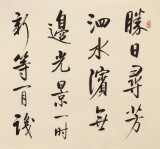 勝日尋芳
泗水濱無
邊光景一時
新等閒識